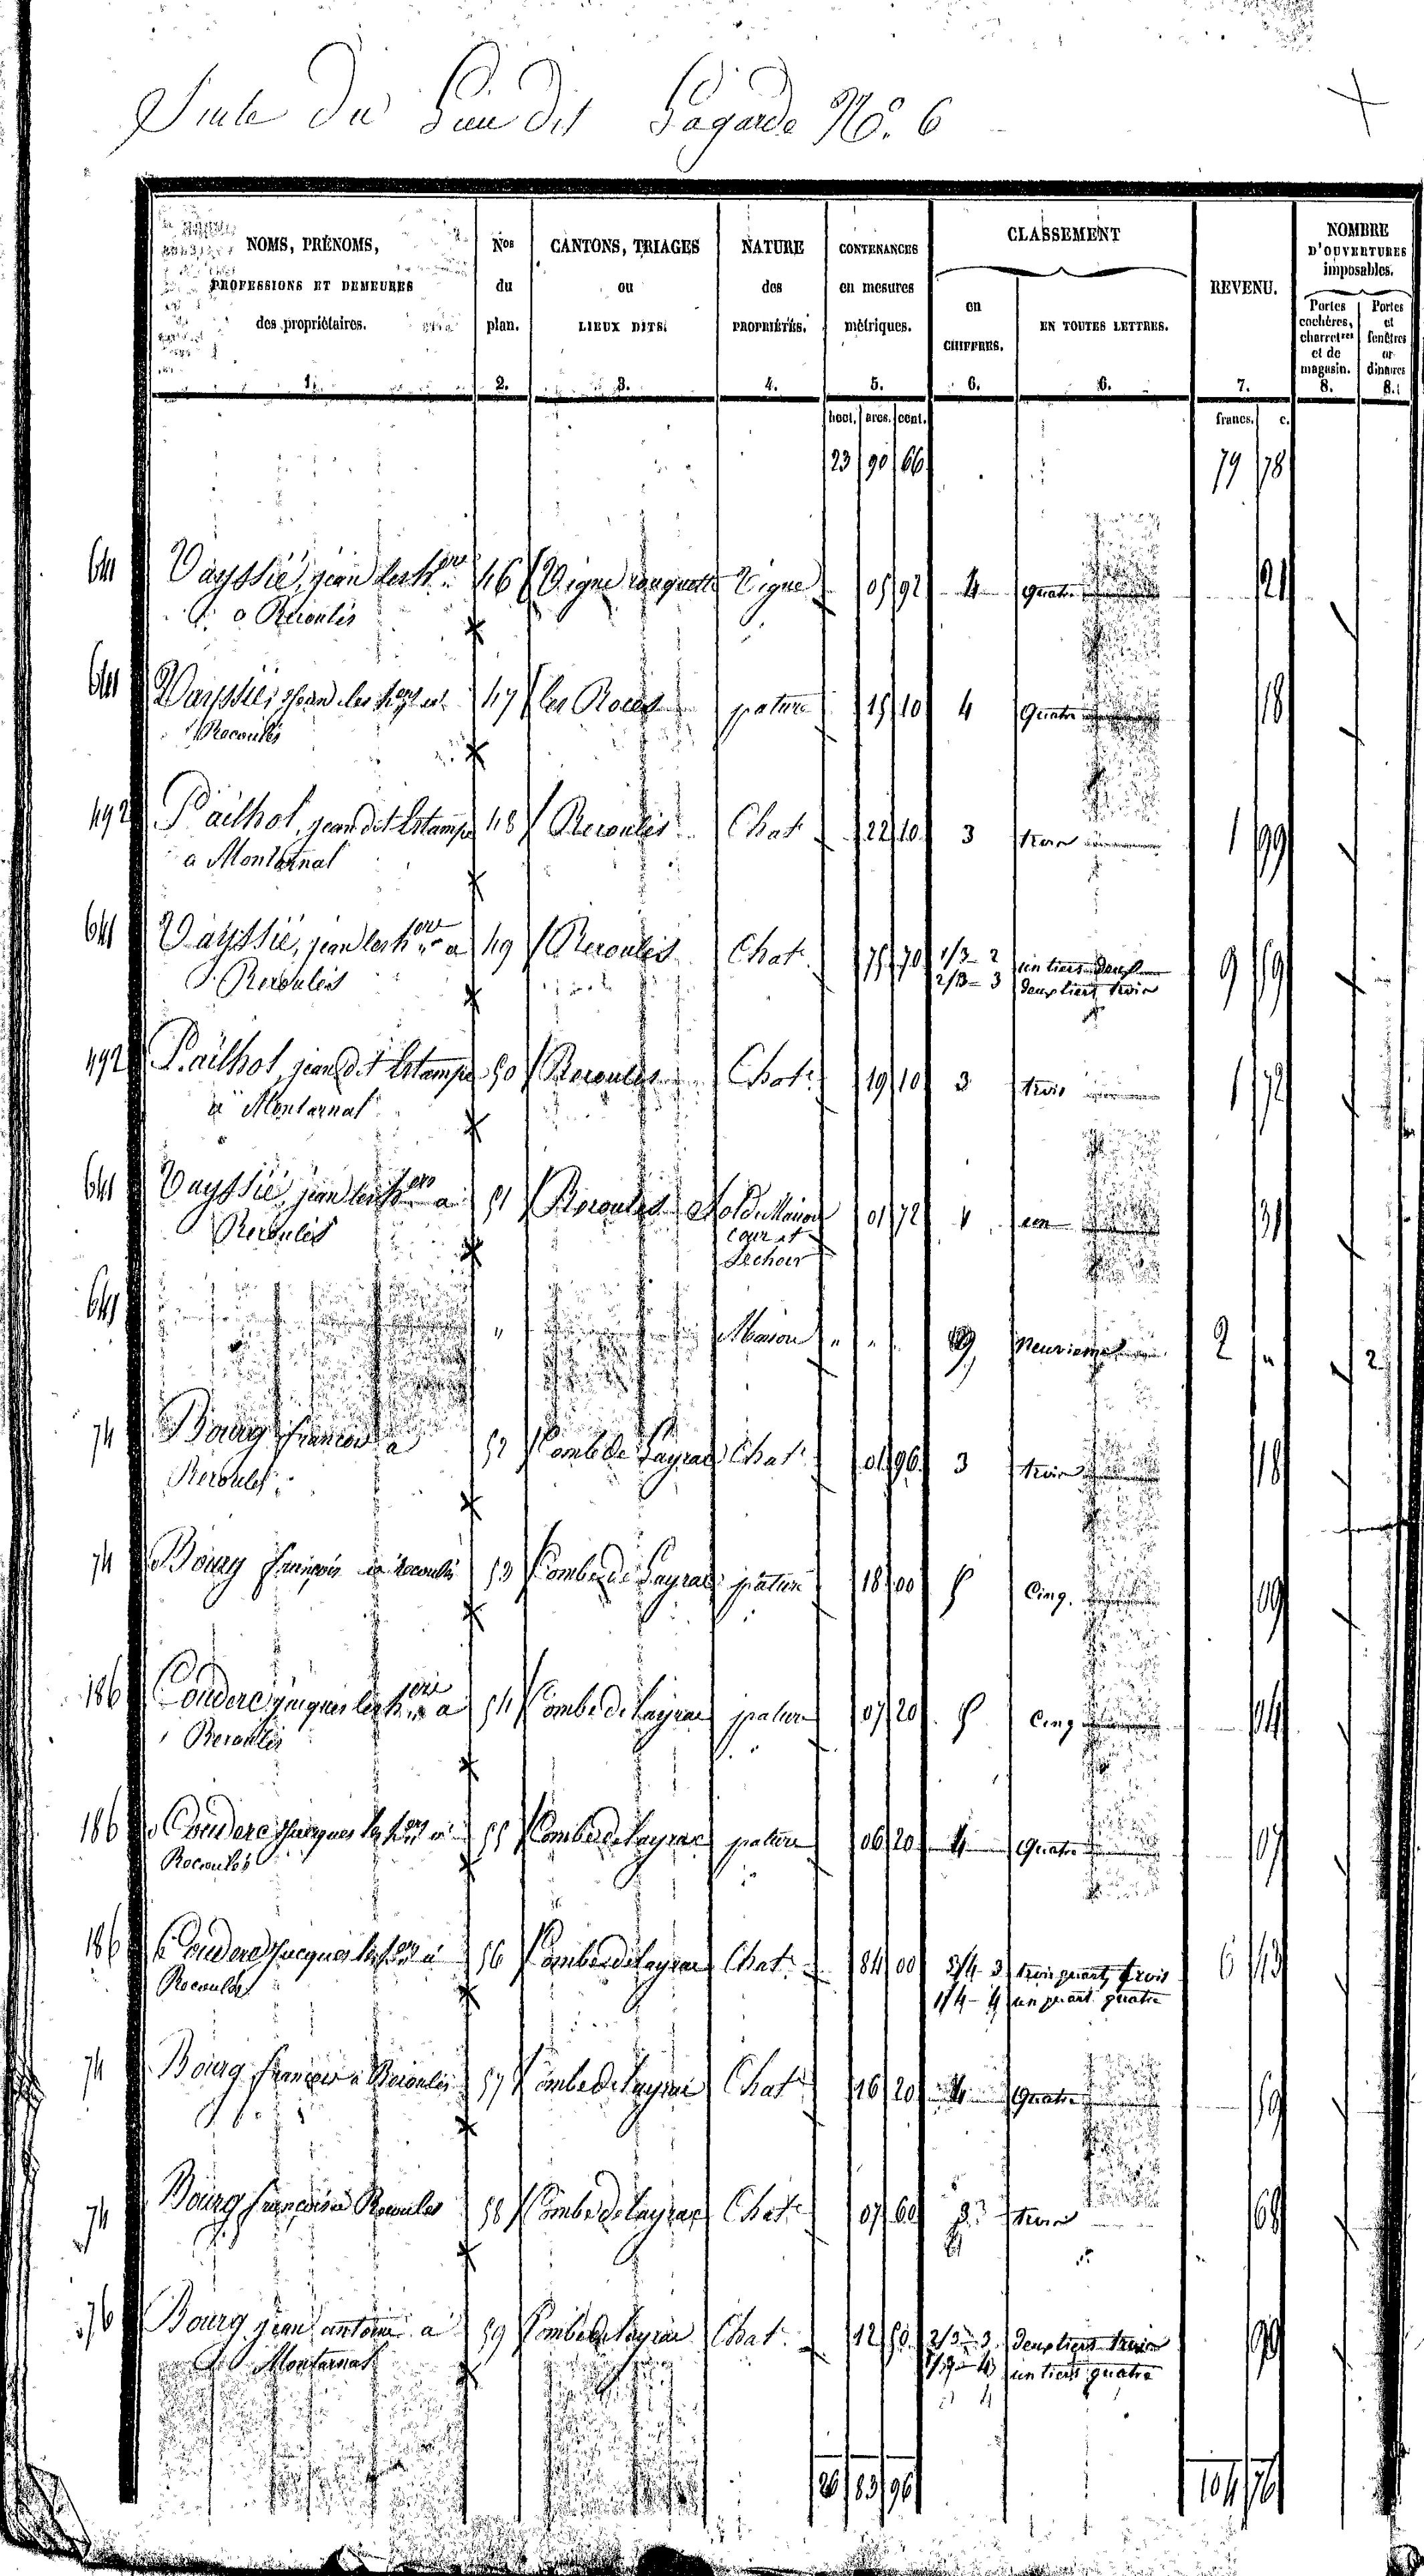 Suite du Lieu dit Lagarde No. 6
NOMS, PRÉNOMS, PROFESSIONS ET DEMEURES des propriétaires. 1.
Nos du plan. 2.
CANTONS, TRIAGES ou LIEUX DITS. 3.
NATURE des PROPRIÉTÉS. 4.
CONTENANCES en mesures métriques. 5.
CLASSEMENT
en CHIFFRES. 6.
EN TOUTES LETTRES. 6.
REVENU. 7.
NOMBRE D'OUVERTURES imposables.
Portes cochères, charretres et de magasin. 8.
Portes et fenêtres ordinaires 8.
hect. ares. cent. francs. c.
23 90 66 79 78
641 Vayssié, jean les hers 46 Vigne rouquette Vigne 05 92 4 Quatre 21
à Recoulès
641 Vayssié, Jean les hers à 47 les Roces pature 15 10 4 Quatre 18
Recoulès
492 Pailhol, jean dit Estampe 48 Recoulès Chat. 22 10 3 trois 1 99
a Montarnal
641 Vayssié, jean les hers a 49 Recoulès Chat. 75 70 1/3 - 2 un tiers deux 9 59
Recoulès 2/3 - 3 deux tiers trois
492 Pailhol, jean dit Estampe 50 Recoulès Chat. 19 10 3 trois 1 72
à Montarnal
641 Vayssié, jean les hers a 51 Recoulès Sol de Maison 01 72 1 un 31
Recoulès cour et
Sechoir
641 " Maison " " 9 Neuvieme 2 " 2
74 Bourg francois a 52 Combe de Layrac Chat. 01 96 3 trois 18
Recoulès
74 Bourg François à Recoulès 53 Combe de Layrac pature 18 00 5 Cinq. 09
186 Couderc jacques les hers a 54 Combe de Layrac pature 07 20 5 Cinq 04
Recoulès
186 Couderc Jacques les hers à 55 Combe de Layrac pature 06 20 4 Quatre 07
Recoulès
186 Couderc Jacques les hers à 56 Combe de Layrac Chat. 84 00 3/4 3 trois quarts trois 6 43
Recoulès 1/4 - 4 un quart quatre
74 Bourg françois à Recoulès 57 Combe de Layrac Chat. 16 20 4 Quatre 59
74 Bourg françois à Recoulès 58 Combe de Layrac Chat. 07 60 3 trois 68
76 Bourg jean antoine a 59 Combe de Layrac Chat. 12 50 2/3 - 3 deux tiers trois 90
Montarnal 1/3 - 4 un tiers quatre
4
26 83 96 104 76